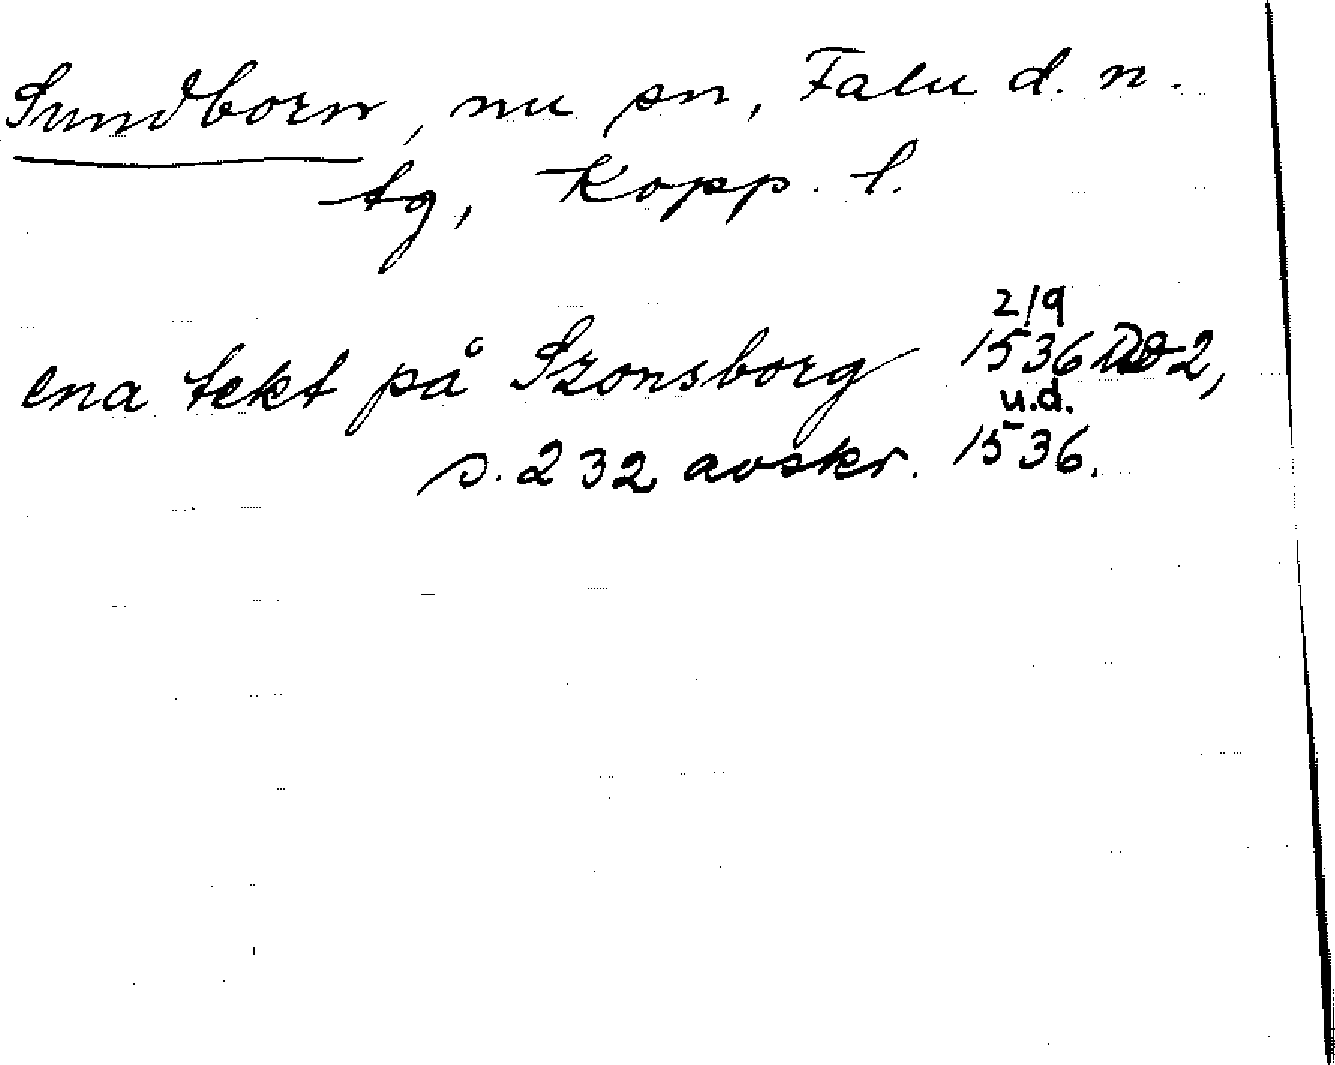 Sundborn, nu sn, Falu d. n.
tg, Kopp. l.
2/9
ena tekt på Szonsborg 1536 DD 2,
u.d.
s. 232 avskr. 1536.